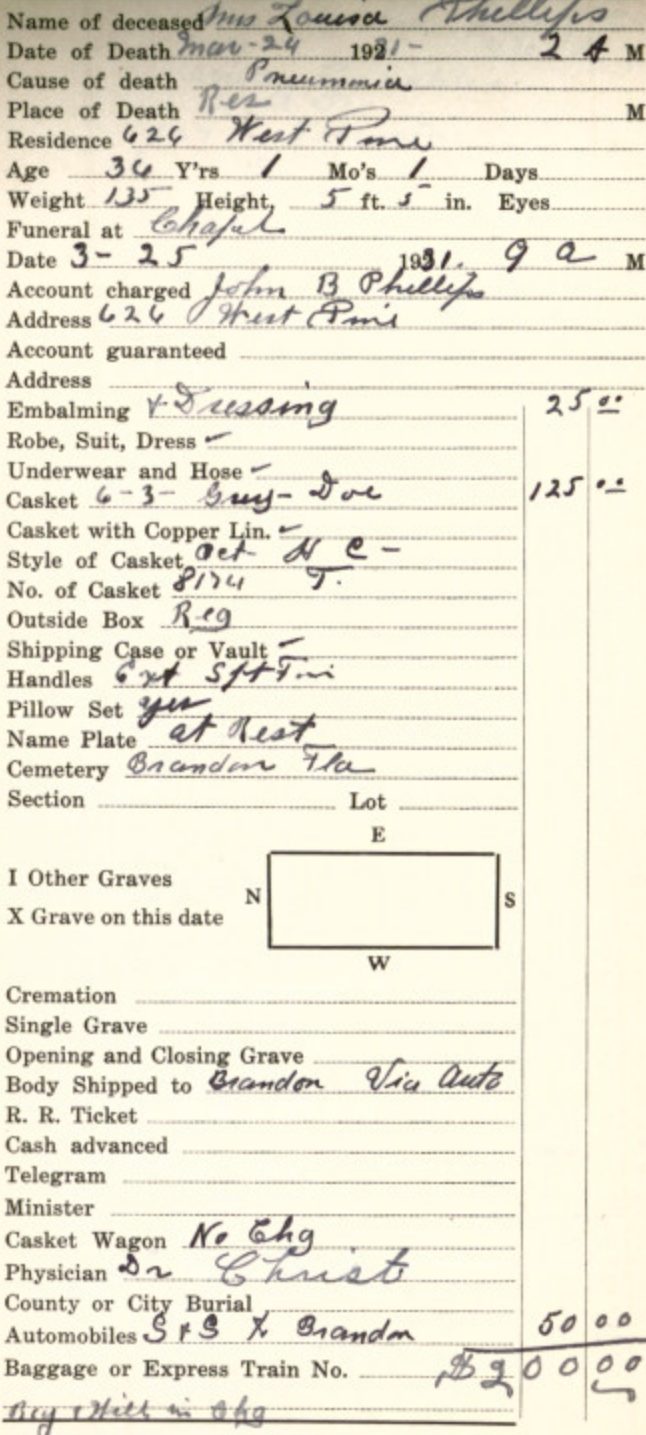 Name of deceased Mrs Louisa Phillips
Date of Death Mar-24 1921- 2 A M
Cause of death Pneumonia
Place of Death Res M
Residence 626 West Pine
Age 36 Y'rs 1 Mo's 1 Days
Weight 135 Height, 5 ft. 5 in. Eyes
Funeral at Chapel
Date 3-25 1931. 9 a M
Account charged John B Phillips
Address 626 West Pine
Account guaranteed
Address
Embalming & Dressing 25 00
Robe, Suit, Dress
Underwear and Hose
Casket 6-3- Grey-Doe 125 00
Casket with Copper Lin.
Style of Casket Oct H C -
No. of Casket T.
Outside Box Reg
Shipping Case or Vault
Handles Ext
Pillow Set yes
Name Plate at Rest
Cemetery Brandon Fla
Section Lot
E
I Other Graves
N S
X Grave on this date
W
Cremation
Single Grave
Opening and Closing Grave
Body Shipped to Brandon Via Auto
R. R. Ticket
Cash advanced
Telegram
Minister
Casket Wagon No Chg
Physician Dr Christ
County or City Burial
Automobiles S & S to Brandon 50 00
Baggage or Express Train No. $200 00
in Chg